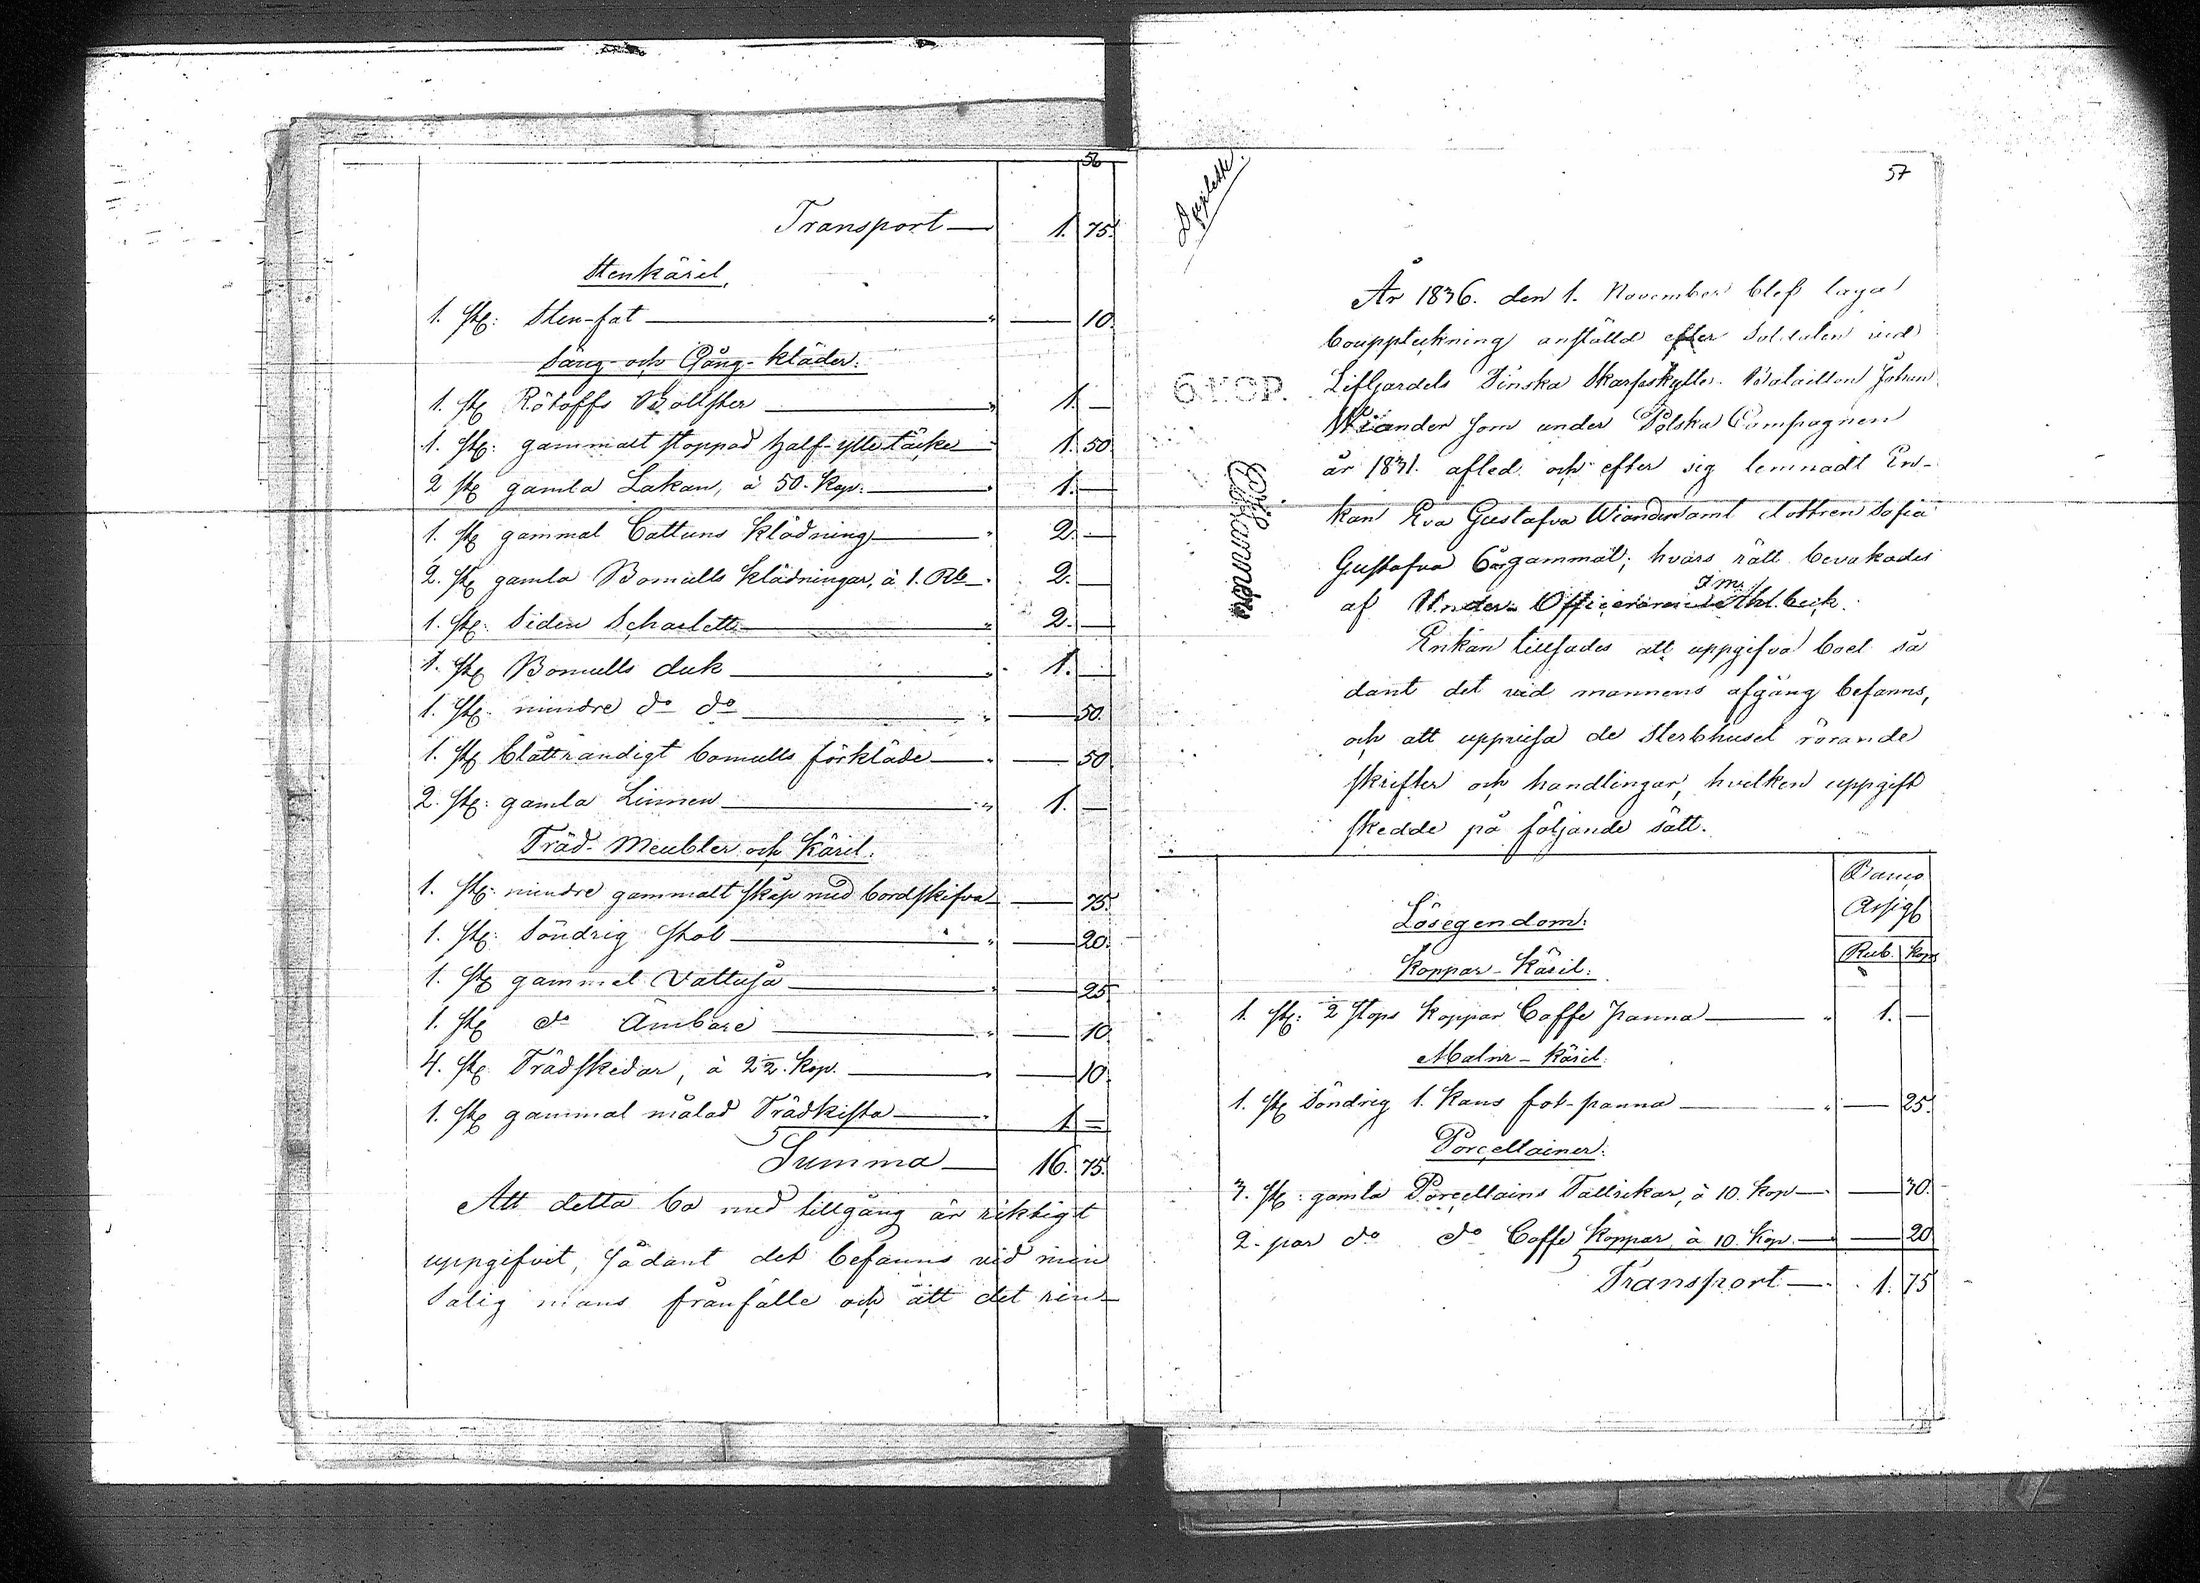 56
Transport — 1. 75.
Stenkäril,
1. st: Sten-fat — " — 10.
Säng- och Gång-kläder.
1. st Rötoffs Bollster — " 1. —
1. st: gammalt stoppad half-ylle täcke — 1. 50.
2 st gamla Lakan, à 50. Kop: — " 1. —
1. st gammal Cattuns Klädning — " 2. —
2. st gamla Bomulls Klädningar, à 1. Rb — " 2. —
1. st: Siden Scharlett — " 2. —
1. st Bomulls duk — " 1. —
1. st: mindre do do — " — 50.
1. st blåttrandigt bomulls förkläde — " — 50
2. st: gamla Linnen — " 1. —
Träd- Meubler och Käril.
1. st: mindre gammalt skåp med bordskifva — 75.
1. st: Söndrig stol — " — 20.
1. st gammel Vattuså — " — 25
1. st do Ämbare — " — 10.
4. st Trädskedar, à 2½. Kop. — " — 10.
1. st gammal målad Trädkista — " 1. —
Summa — 16. 75.
Att detta bo med tillgång är riktigt
uppgifvit, sådant det befanns vid min
Salig mans frånfälle och att det rin-
57
Duplette.
År 1836. den 1. November blef laga
bouppteckning anställd efter Soldaten vid
LifGardets Finska Skarpskytte- Bataillon Johan
Wiander som under Polska Campagnen
år 1831. afled och efter sig lemnadt En-
kan Eva Gustafva Wiander samt dottren Sofia
Gustafva 6 år gammal; hvars rätt bevakades
af Under- Officeraren
Enkan tillsades att uppgifva boet så
dant det vid mannens afgång befanns,
och att uppvisa de Sterbhuset rörande
skrifter och handlingar, hvilken uppgift
skedde på följande sätt.
6 KOP.
Banco
Assigt
Rub. Kop
Lösegendom:
Koppar-Käril:
1. st: 2 Stops Koppar Caffe panna — " 1. —
Malm-Käril.
1. st Söndrig 1. Kans fot-panna — " — 25.
Porcellainer:
3. st: gamla Porcellains Tallrikar, à 10. Kop — — 30.
2. par do do Caffe Koppar à 10. Kop. — — 20
Transport — 1. 75